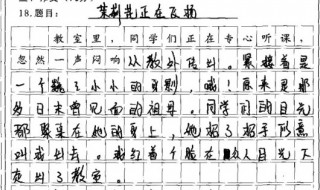 18.题目： 茉莉花正在飞扬
教室里，同学们正在专心听课，
忽然一声闷响从教外传出。紧接着是
一个 小小的 哦！原来是那
多日未曾见面的祖母。同学们的目光
都聚集在她的身上，她招了招手示意
叫我出去。我红着个脸在众人目光下
走出了教室。